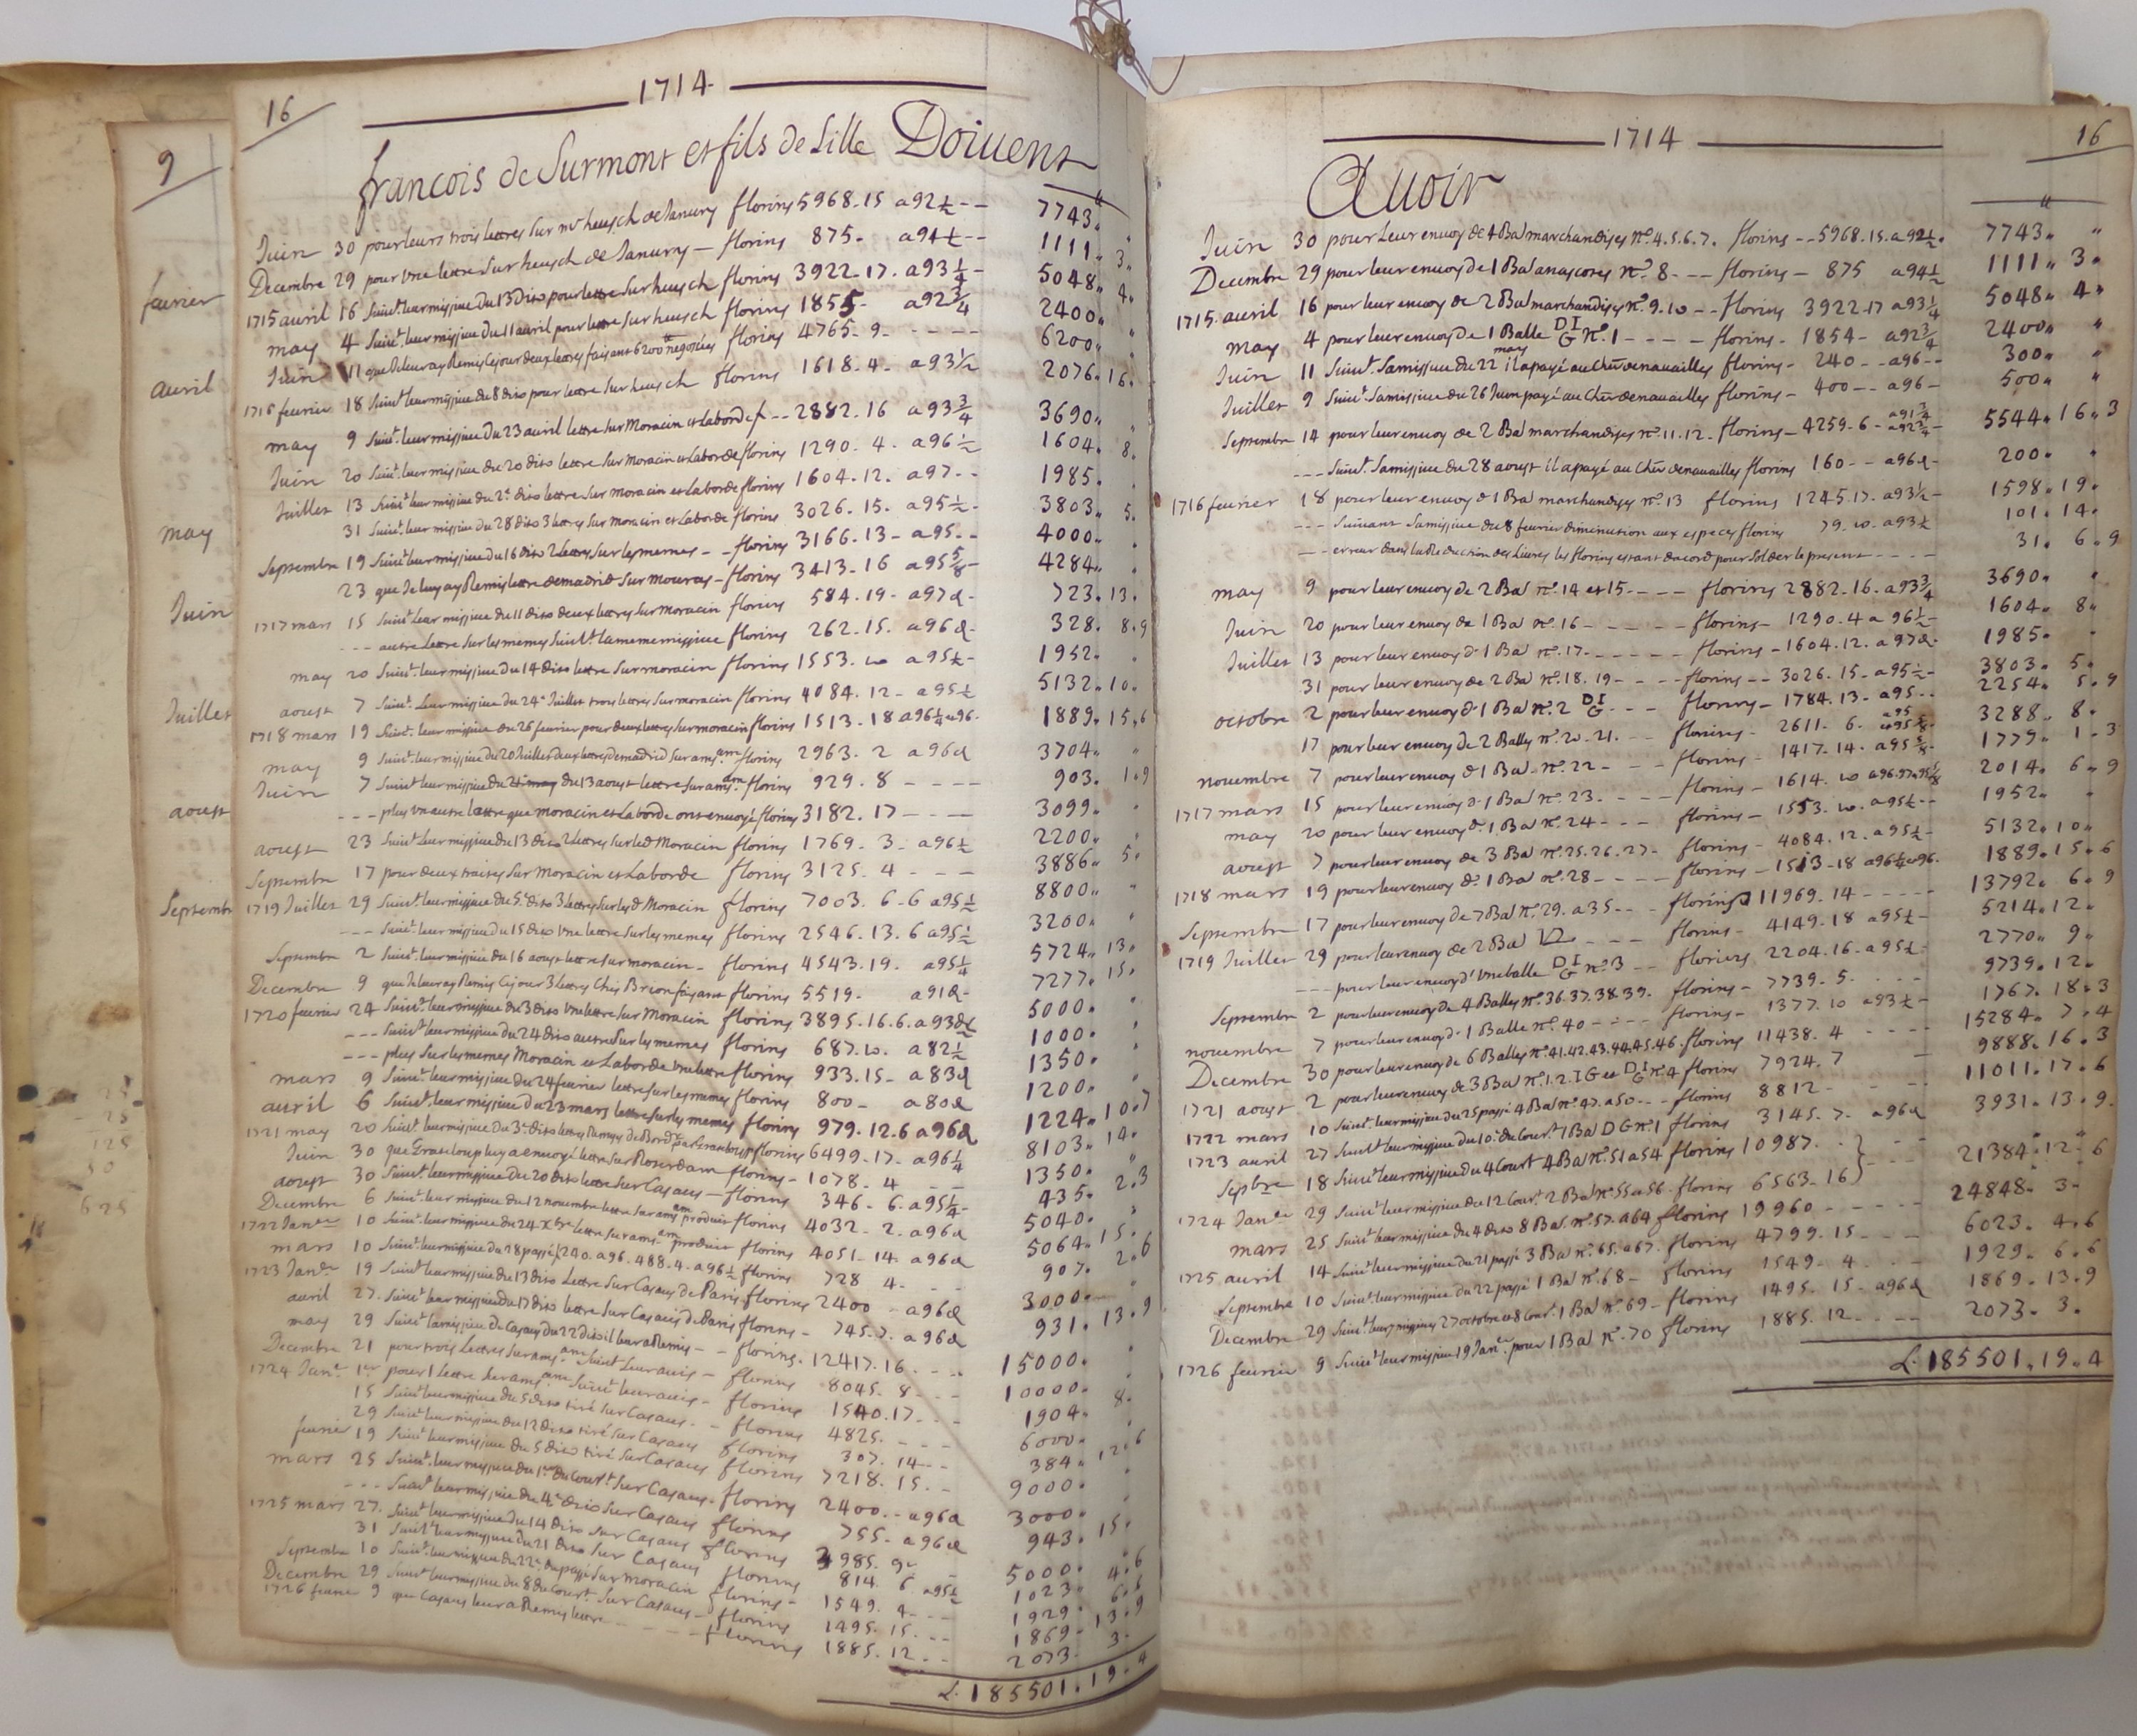 9
fevrier
avril
may
Juin
Juillet
aoust
Septembr
16
1714
francois de Surmont et fils de Lille Doivent
Juin 30 pour leurs trois lettres sur mr heusch de Janvry florins 5968.15 a 92 1/2 -- 7743 "
Decembre 29 pour vne lettre sur heusch de Janvry — florins 875 - a 94 1/2 -- 1111 " 3 "
1715 avril 16 Suivt. leur missive du 13 dito pour lettre sur heusch florins 3922.17. a 93 1/4 - 5048 " 4 "
may 4 Suivt. leur missive du 11 avril pour lettre sur heusch florins 1855 - a 92 3/4 2400 "
Juin 11 que Je leur ay Remis ce jour deux lettres faisant 6200 tt negociées florins 4765. 9 - - - - - 6200 "
1716 fevrier 18 Suivt leur missive du 8 dito pour lettre sur heusch florins 1618.4. a 93 1/2 2076.16.
may 9 Suivt. leur missive du 23 avril lettre sur Moracin et Laborde f. -- 2882.16 a 93 3/4 3690 "
Juin 20 Suivt. leur missive du 20 dito lettre sur Moracin et Laborde florins 1290. 4. a 96 1/2 1604. 8.
Juillet 13 Suivt leur missive du 2e. dito lettre sur moracin et Laborde florins 1604.12. a 97 -- 1985.
31 Suivt. leur missive du 28 dito 3 lettres sur Moracin et Laborde florins 3026.15. a 95 1/2 - 3803. 5.
Septembre 19 Suivt leur missive du 16 dito 2 Lettres sur les memes -- florins 3166.13 - a 95 -- 4000 "
23 que Je luy ay Remis lettre de madrid sur Mouras — florins 3413.16 a 95 5/8 - 4284 "
1717 mars 15 Suivt Leur missive du 11 dito deux lettres sur moracin florins 584.19 - a 97 d - 723.13.
--- autre Lettre sur les memes Suivt. la meme missive florins 262.15. a 96 d - 328. 8.9
may 20 Suivt. leur missive du 14 dito lettre sur moracin florins 1553.10 a 95 1/2 - 1952.
aoust 7 Suivt. Leur missive du 24e Juillet trois lettres sur moracin florins 4084.12 - a 95 1/2 5132.10.
1718 mars 19 Suivt. leur missive du 26 fevrier pour deux lettres sur moracin florins 1513.18 a 96 1/4 a 96. 1889.15.6
may 9 Suivt. leur missive du 20 Juillet deux lettres de madrid sur ams.am florins 2963. 2 a 96 d 3704 "
Juin 7 Suivt leur missive du 21 may du 13 aoust lettre sur ams.am florins 929. 8 - - - - 903. 1.9
--- plus vn autre lettre que moracin et Laborde ont envoyé florins 3182.17 - - - - 3099 "
aoust 23 Suivt Leur missive du 13 dito 2 Lettres sur led Moracin florins 1769. 3 - a 96 1/2 2200 "
Septembre 17 pour deux traites sur Moracin et Laborde florins 3125. 4 - - - 3886. 5.
1719 Juillet 29 Suivt leur missive du 5e. dito 3 lettres sur lesd Moracin florins 7003. 6 - 6 a 95 1/2 8800 "
--- Suivt. leur missive du 15 dito vne lettre sur les memes florins 2546.13.6 a 95 1/2 3200.
Septembre 2 Suivt. leur missive du 16 aoust lettre sur moracin - florins 4543.19. a 95 1/4 5724.13.
Decembre 9 que Je leur ay Remis ce jour 3 lettres Chés Brion faisant florins 5519 - a 91 d - 7277.15.
1720 fevrier 24 Suivt. leur missive du 3 dito vne lettre sur Moracin florins 3895.16.6. a 93 d 1/2 5000.
--- Suivt leur missive du 24 dito autre sur les memes florins 687.10. a 82 1/2 1000.
--- plus sur les memes Moracin et Laborde vne lettre florins 933.15 - a 83 d 1350.
mars 9 Suivt. leur missive du 24 fevrier lettre sur les memes florins 800 - a 80 d 1200.
avril 6 Suivt. leur missive du 23 mars lettre sur les memes florins 979.12.6 a 96 d 1224.10.7
1721 may 20 Suivt. leur missive du 3e. dito florins 6499.17 - a 96 1/4 8103.14.
Juin 30 que Grateloup luy a envoyé lettre sur Roterdam florins - 1078. 4 - - 1350.
aoust 30 Suivt. leur missive du 20 dito lettre sur Casaus — florins 346. 6. a 95 1/4 - 435. 2.3
Decembre 6 Suivt. leur missive du 12 novembre lettre sur ams.am produit florins 4032. 2. a 96 d 5040.
1722 Janer 10 Suivt. leur missive du 24 Xbre lettre sur ams.am produit florins 4051.14. a 96 d 5064.15.
mars 10 Suivt. leur missive du 28 passé f 240. a 96. 488.4. a 96 1/2 florins 728 4. - - 907. 2.6
1723 Janer 19 Suivt leur missive du 13 dito Lettre sur Casaus de Paris florins 2400 - a 96 d 3000.
avril 27. Suivt leur missive du 17 dito lettre sur Casaus de Paris florins - 745. 7. a 96 d 931.13.9
may 29 Suivt la missive de Casaus du 22 dito il leur a Remis -- florins. 12417.16. - - - 15000.
Decembre 21 pour trois Lettres sur ams.am Suivt Leur avis - florins 8045. 8 - - - 10000.
1724 Janr. 1er pour 1 lettre sur ams.am Suivt leur avis - florins 1540.17. - - 1904. 8.
15 Suivt leur missive du 5 dito tiré sur Casaus - - florins 4825. - - - 6000.
29 Suivt leur missive du 12 dito tiré sur Casaus florins 307.14 - - 384.12.6
fevrier 19 Suivt leur missive du 5 dito tiré sur Casaus florins 7218.15. - 9000.
mars 25 Suivt. leur missive du 1er du Court. sur Casaus - florins 2400. - a 96 d 3000.
--- Suivt leur missive du 4e dito sur Casaus florins 755. a 96 d 943.15.
1725 mars 27. Suivt leur missive du 14 dito sur Casaus florins 3985. 9 - 5000.
31 Suivt leur missive du 21 dito sur Casaus florins 814. 6 a 95 1/2 1023. 4.6
Septembre 10 Suivt. leur missive du 22e. du passé sur moracin florins - 1549. 4 - - - 1929. 6.6
Decembre 29 Suivt leur missive du 8 du Court. sur Casaus - florins 1495.15. - - 1869.13.9
1726 fevrier 9 que Casaus leur a Remis lettre - - - - florins 1885.12. - - 2073. 3.
L. 185501.19.4
1714
16
Avoir
Juin 30 pour Leur envoy de 4 Bal marchandises no. 4.5.6.7. florins -- 5968.15. a 92 1/2. 7743 " "
Decembre 29 pour leur envoy de 1 Bal anascotes no. 8 - -- florins - 875 a 94 1/2 1111 " 3 "
1715. avril 16 pour leur envoy de 2 Bal marchandises no. 9.10 -- florins 3922.17 a 93 1/4 5048 " 4 "
may 4 pour leur envoy de 1 Balle DI G no. 1 - - - - florins - 1854 - a 92 3/4 2400 " "
Juin 11 Suivt. Sa missive du 22 may il a payé au Chr de navailles florins - 240 - - a 96 -- 300 " "
Juillet 9 Suivt. Sa missive du 26 Juin payé au Chr de navailles florins - 400 -- a 96 - 500 " "
Septembre 14 pour leur envoy de 2 Bal marchandises no. 11.12. florins - 4259.6 - a 91 3/4 a 92 3/4 - 5544.16.3
--- Suivt. Sa missive du 28 aoust il a payé au Chr de navailles florins 160 -- a 96 d - 200.
1716 fevrier 18 pour leur envoy d 1 Bal marchandises no. 13 florins 1245.17. a 93 1/2 - 1598.19.
--- Suivant Sa missive du 8 fevrier diminution aux especes florins 79.10 - a 93 1/2 101.14.
--- erreur dans la Reduction des Livres les florins estant dacord pour solder le present - - - - 31. 6.9
may 9 pour leur envoy de 2 Bal no. 14 et 15 - - - - florins 2882.16. a 93 3/4 3690 " "
Juin 20 pour leur envoy de 1 Bal no. 16 - - - - - florins - 1290.4 a 96 1/2 - 1604. 8 "
Juillet 13 pour leur envoy d 1 Bal no. 17 - - - - - - florins - 1604.12. a 97 d - 1985.
31 pour leur envoy de 2 Bal no. 18.19 - - - - florins -- 3026.15. a 95 1/2 - 3803. 5.
octobre 2 pour leur envoy d 1 Bal no. 2 DI G - - - florins - 1784.13 - a 95 -- 2254. 5.9
17 pour leur envoy de 2 Balles no. 20.21. - - florins - 2611. 6. a 95 a 95 5/8 3288. 8.
novembre 7 pour leur envoy d 1 Bal. no. 22 - - - - florins - 1417.14. a 95 5/8 - 1779. 1.3
1717 mars 15 pour leur envoy d 1 Bal no. 23. - - - florins - 1614.10 a 96.97. a 95 5/8 2014. 6.9
may 20 pour leur envoy d. 1 Bal no. 24 - - - florins - 1553.10. a 95 1/2 -- 1952 " "
aoust 7 pour leur envoy de 3 Bal no. 25.26.27 - florins - 4084.12. a 95 1/2 - 5132.10.
1718 mars 19 pour leur envoy d. 1 Bal no. 28 - - - - florins - 1513 - 18 a 96 1/4 a 96. 1889.15.6
Septembre 17 pour leur envoy de 7 Bal no. 29. a 35 - - florins 11969.14 - - - - 13792. 6.9
1719 Juillet 29 pour leur envoy de 2 Bal - - - florins - 4149.18 a 95 1/2 - 5214.12.
--- pour leur envoy d'vne balle DI G no. 3 -- florins 2204.16 - a 95 1/2 - 2770. 9.
Septembre 2 pour leur envoy de 4 Balles no. 36.37.38.39. florins - 7739. 5. - - - 9739.12.
novembre 7 pour leur envoy d. 1 Balle no. 40 - - - - florins - 1377.10 a 93 1/2 - 1767.18.3
Decembre 30 pour leur envoy de 6 Balles no. 41.42.43.44.45.46. florins 11438. 4 - - - - 15284. 7.4
1721 aoust 2 pour leur envoy de 3 Bal no. 1.2. IG et DI G no. 4 florins 7924. 7 - 9888.16.3
1722 mars 10 Suivt. leur missive du 25 passé 4 Bal no. 47. a 50 - - florins 8812 - - - - 11011.17.6
1723 avril 27 Suivt leur missive du 10e. du Court. 1 Bal DG no. 1 florins 3145. 7. a 96 d 3931.13.9.
Sepbre 18 Suivt leur missive du 4 Court 4 Bal no. 51 a 54 florins 10987. -
1724 Janer 29 Suivt leur missive du 12 Court. 2 Bal no. 55 a 56. florins 6563.16 } - - - 21384.12.6
mars 25 Suivt leur missive du 4 dito 8 Bal. no. 57. a 64 florins 19960 - - - - - 24848. 3 -
1725 avril 14 Suivt leur missive du 21 passé 3 Bal no. 65. a 67. florins 4799.15 - - - 6023. 4.6
Septembre 10 Suivt leur missive du 22 passé 1 Bal no. 68 - florins 1549. 4 - - - 1929. 6.6
Decembre 29 Suivt leurs missives 27 octobre et 8 Cour. 1 Bal no. 69 - florins 1495.15 - a 96 d 1869.13.9
1726 fevrier 9 Suivt leur missive 19 Janer. pour 1 Bal no. 70 florins 1885.12. - - - 2073. 3.
L. 185501.19.4